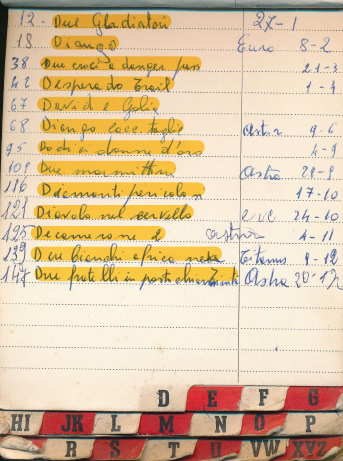 12 - Due Gladiatori 27-1
18 Diango Euro 8-2
38 Due croci a danger pass 21-3
42 Desperado Trail 1-4
67 David e Golia
68 Diango cacc taglie Astor 9-6
95 Dodici donne d'oro 4-9
109 Due mammittri Astra 28-9
116 Diamanti pericolosi 17-10
121 Diavolo nel cervello 24-10
125 Decamerone 2 Astra 4-11
139 Due bianchi africa nera Titanus 9-12
147 Due fratelli in posto chiamato Astra 20-12
D E F G
HI JK L M N O P
R S T U VW XYZ